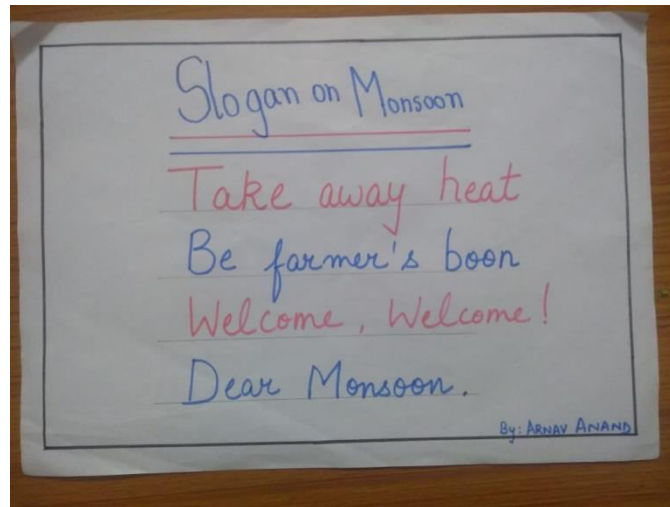 Slogan on Monsoon
Take away heat
Be farmer's boon
Welcome, Welcome!
Dear Monsoon.
By: ARNAV ANAND